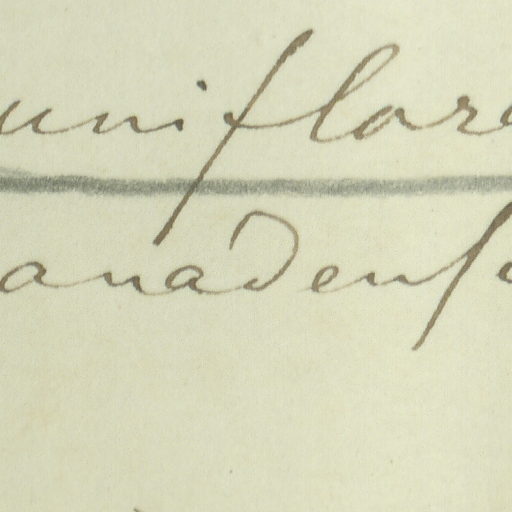 uniflore
anadense